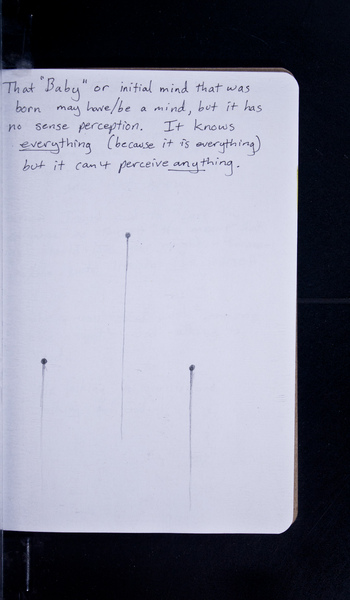 That "Baby" or initial mind that was
born may have/be a mind, but it has
no sense perception. It knows
everything (because it is everything)
but it can't perceive anything.